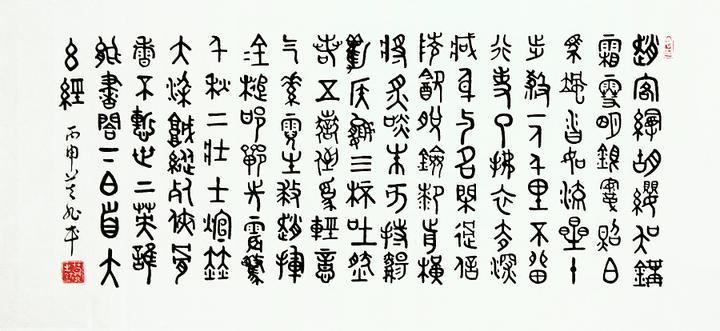 趙客縵胡纓吳鉤
霜雪明銀鞍照白
馬颯沓如流星十
步殺一人千里不留
行事了拂衣去深
藏身與名閑過信
陵飲脫劍膝前橫
將炙啖朱亥持觴
勸侯嬴三杯吐然
諾五嶽倒為輕意
氣素霓生救趙揮
金槌邯鄲先震驚
千秋二壯士烜赫
大梁城縱死俠骨
香不慚世上英誰
能書閤下白首太
玄經
丙申